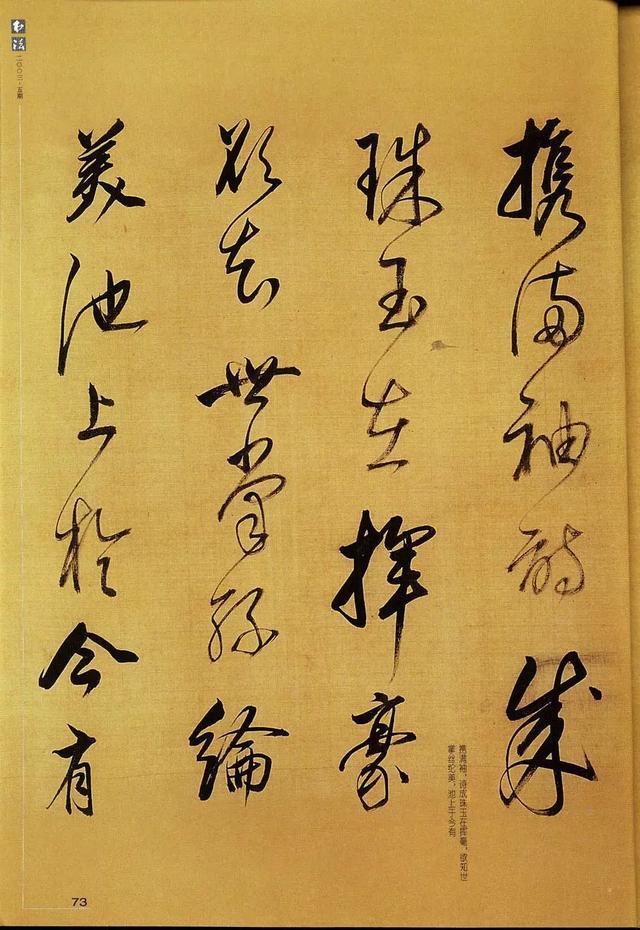 携满袖诗成
珠玉在揮毫
欲知世掌丝綸
美池上於今有
携满袖，诗成珠玉在挥毫。欲知世
掌丝纶美，池上于今有
书法
二〇〇三·五期
73